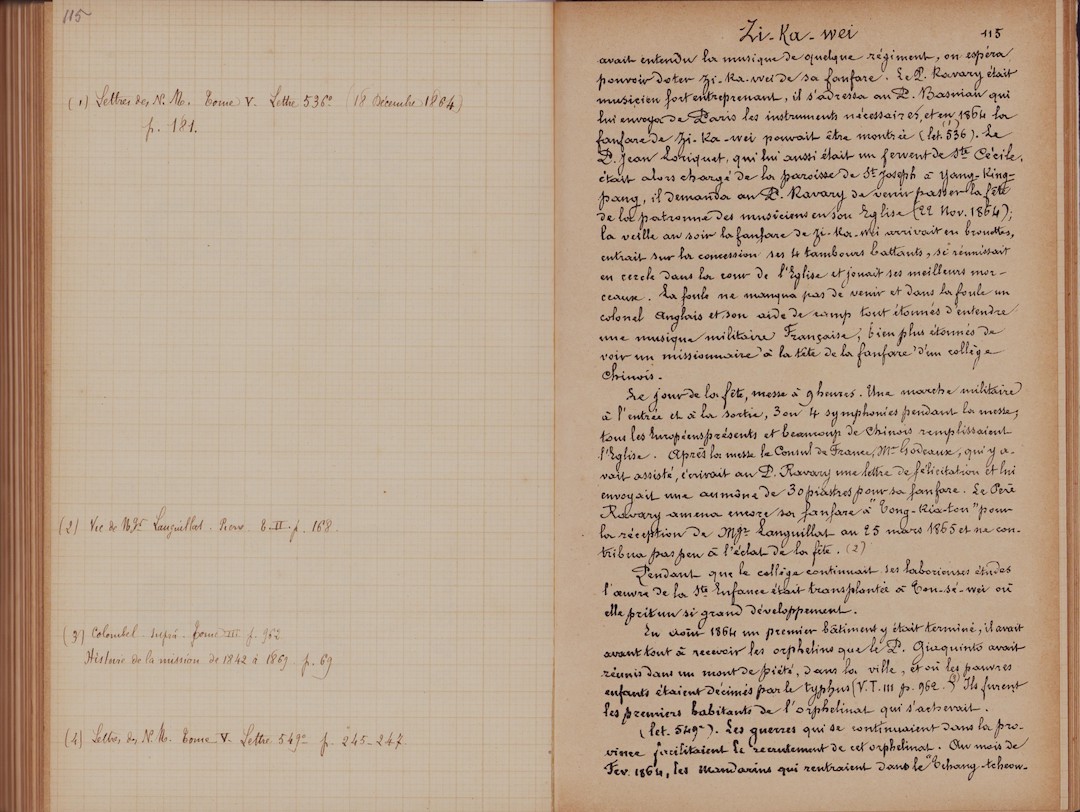 115
(1) Lettres des N. M. Tome V. Lettre 536e (18 Décembre 1864)
p. 181.
(2) Vie de Mgr Languillat. Pierre T. II. p. 168.
(3) Colombel suprà Tome III p. 962
Histoire de la mission de 1842 à 1869 p. 69
(4) Lettres des N. M. Tome V. Lettre 549e p. 245-247.
Zi-Ka-wei
115
avait entendu la musique de quelque régiment, on espéra
pouvoir doter Zi-Ka-wei de sa fanfare. Le P. Ravary était
musicien fort entreprenant, il s'adressa au P. Basuiau qui
lui envoya de Paris les instruments nécessaires, et en 1864 la
fanfare de Zi-Ka-wei pouvait être montrée (let. 536). Le
P. Jean Loriquet, qui lui aussi était un fervent de Ste Cécile,
était alors chargé de la paroisse de St Joseph à Yang-King-
pang, il demanda au P. Ravary de venir passer la fête
de la patronne des musiciens en son Eglise (22 Nov. 1864);
la veille au soir la fanfare de Zi-Ka-wei arrivait en brouettes,
entrait sur la concession ses 4 tambours battants, se réunissait
en cercle dans la cour de l'Eglise et jouait ses meilleurs mor-
ceaux. La foule ne manqua pas de venir et dans la foule un
colonel Anglais et son aide de camp tout étonnés d'entendre
une musique militaire Française, bien plus étonnés de
voir un missionnaire à la tête de la fanfare d'un collège
Chinois.
Le jour de la fête, messe à 9 heures. Une marche militaire
à l'entrée et à la sortie, 3 ou 4 symphonies pendant la messe;
tous les Européens présents et beaucoup de Chinois remplissaient
l'Eglise. Après la messe le Consul de France, Mr Godeaux, qui y a-
vait assisté, écrivait au P. Ravary une lettre de félicitation et lui
envoyait une aumône de 30 piastres pour sa fanfare. Le Père
Ravary amena encore sa fanfare à "Tong-Kia-tou" pour
la réception de Mgr Languillat au 25 mars 1865 et ne con-
tribua pas peu à l'éclat de la fête. (2)
Pendant que le collège continuait ses laborieuses études
l'œuvre de la Ste Enfance était transplantée à Tou-sé-wei où
elle prit un si grand développement.
En août 1864 un premier bâtiment y était terminé; il avait
avant tout à recevoir les orphelins que le P. Giaquinto avait
réunis dans un mont de piété, dans la ville, et où les pauvres
enfants étaient décimés par le typhus (V. T. III p. 962.) Ils furent
les premiers habitants de l'orphelinat qui s'achevait.
(let. 549e). Les guerres qui se continuaient dans la pro-
vince facilitaient le recrutement de cet orphelinat. Au mois de
Fev. 1864, les mandarins qui rentraient dans le "Tchang-tcheou-